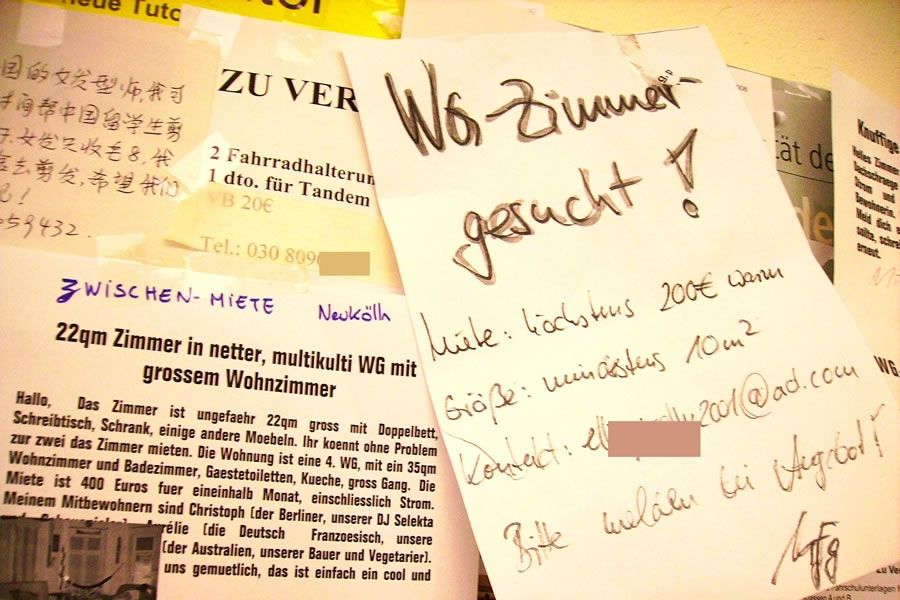 neue Tuto
国的女发型师,我可
时间帮中国留学生剪
发只收毛8,
去剪发,希望我们
059432.
ZU VER
2 Fahrradhalterun
1 dto. für Tandem
VB 20€
Tel.: 030 809
ZWISCHEN-MIETE Neukölln
22qm Zimmer in netter, multikulti WG mit
grossem Wohnzimmer
Hallo, Das Zimmer ist ungefaehr 22qm gross mit Doppelbett,
Schreibtisch, Schrank, einige andere Moebeln. Ihr koennt ohne Problem
zur zwei das Zimmer mieten. Die Wohnung ist eine 4. WG, mit ein 35qm
Wohnzimmer und Badezimmer, Gaestetoiletten, Kueche, gross Gang. Die
Miete ist 400 Euros fuer eineinhalb Monat, einschliesslich Strom.
Meinem Mitbewohnern sind Christoph (der Berliner, unserer DJ Selekta
rélie (die Deutsch Franzoesisch, unsere
(der Australien, unserer Bauer und Vegetarier).
uns gemuetlich, das ist einfach ein cool und
WG-Zimmer
gesucht!
Miete: höchstens 200€ warm
Größe: mindestens 10m²
Kontakt: 2001@aol.com
Bitte melden bei Angebot!
MfG
tät de
de
Knuffige
Helles Zimmer
Dachschraege
Strom und
Bewohnerin.
Meld dich
sollte, schre
erneut.
WG
zu Ve
Fahrschulunterlagen
ssen A und B